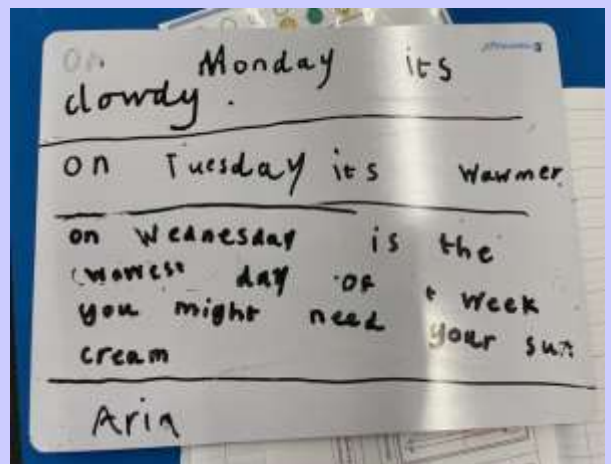 On Monday its
clowdy.
on Tuesday its wawmer.
on Wednesday is the
day of week
you might need your sun
cream
Aria